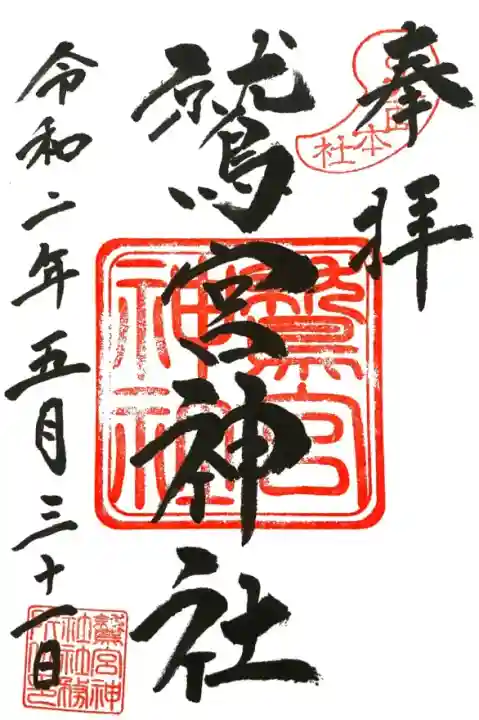 奉拝
本社
鷲宮神社
鷲宮神社
令和二年五月三十一日
鷲宮神社社務所之印